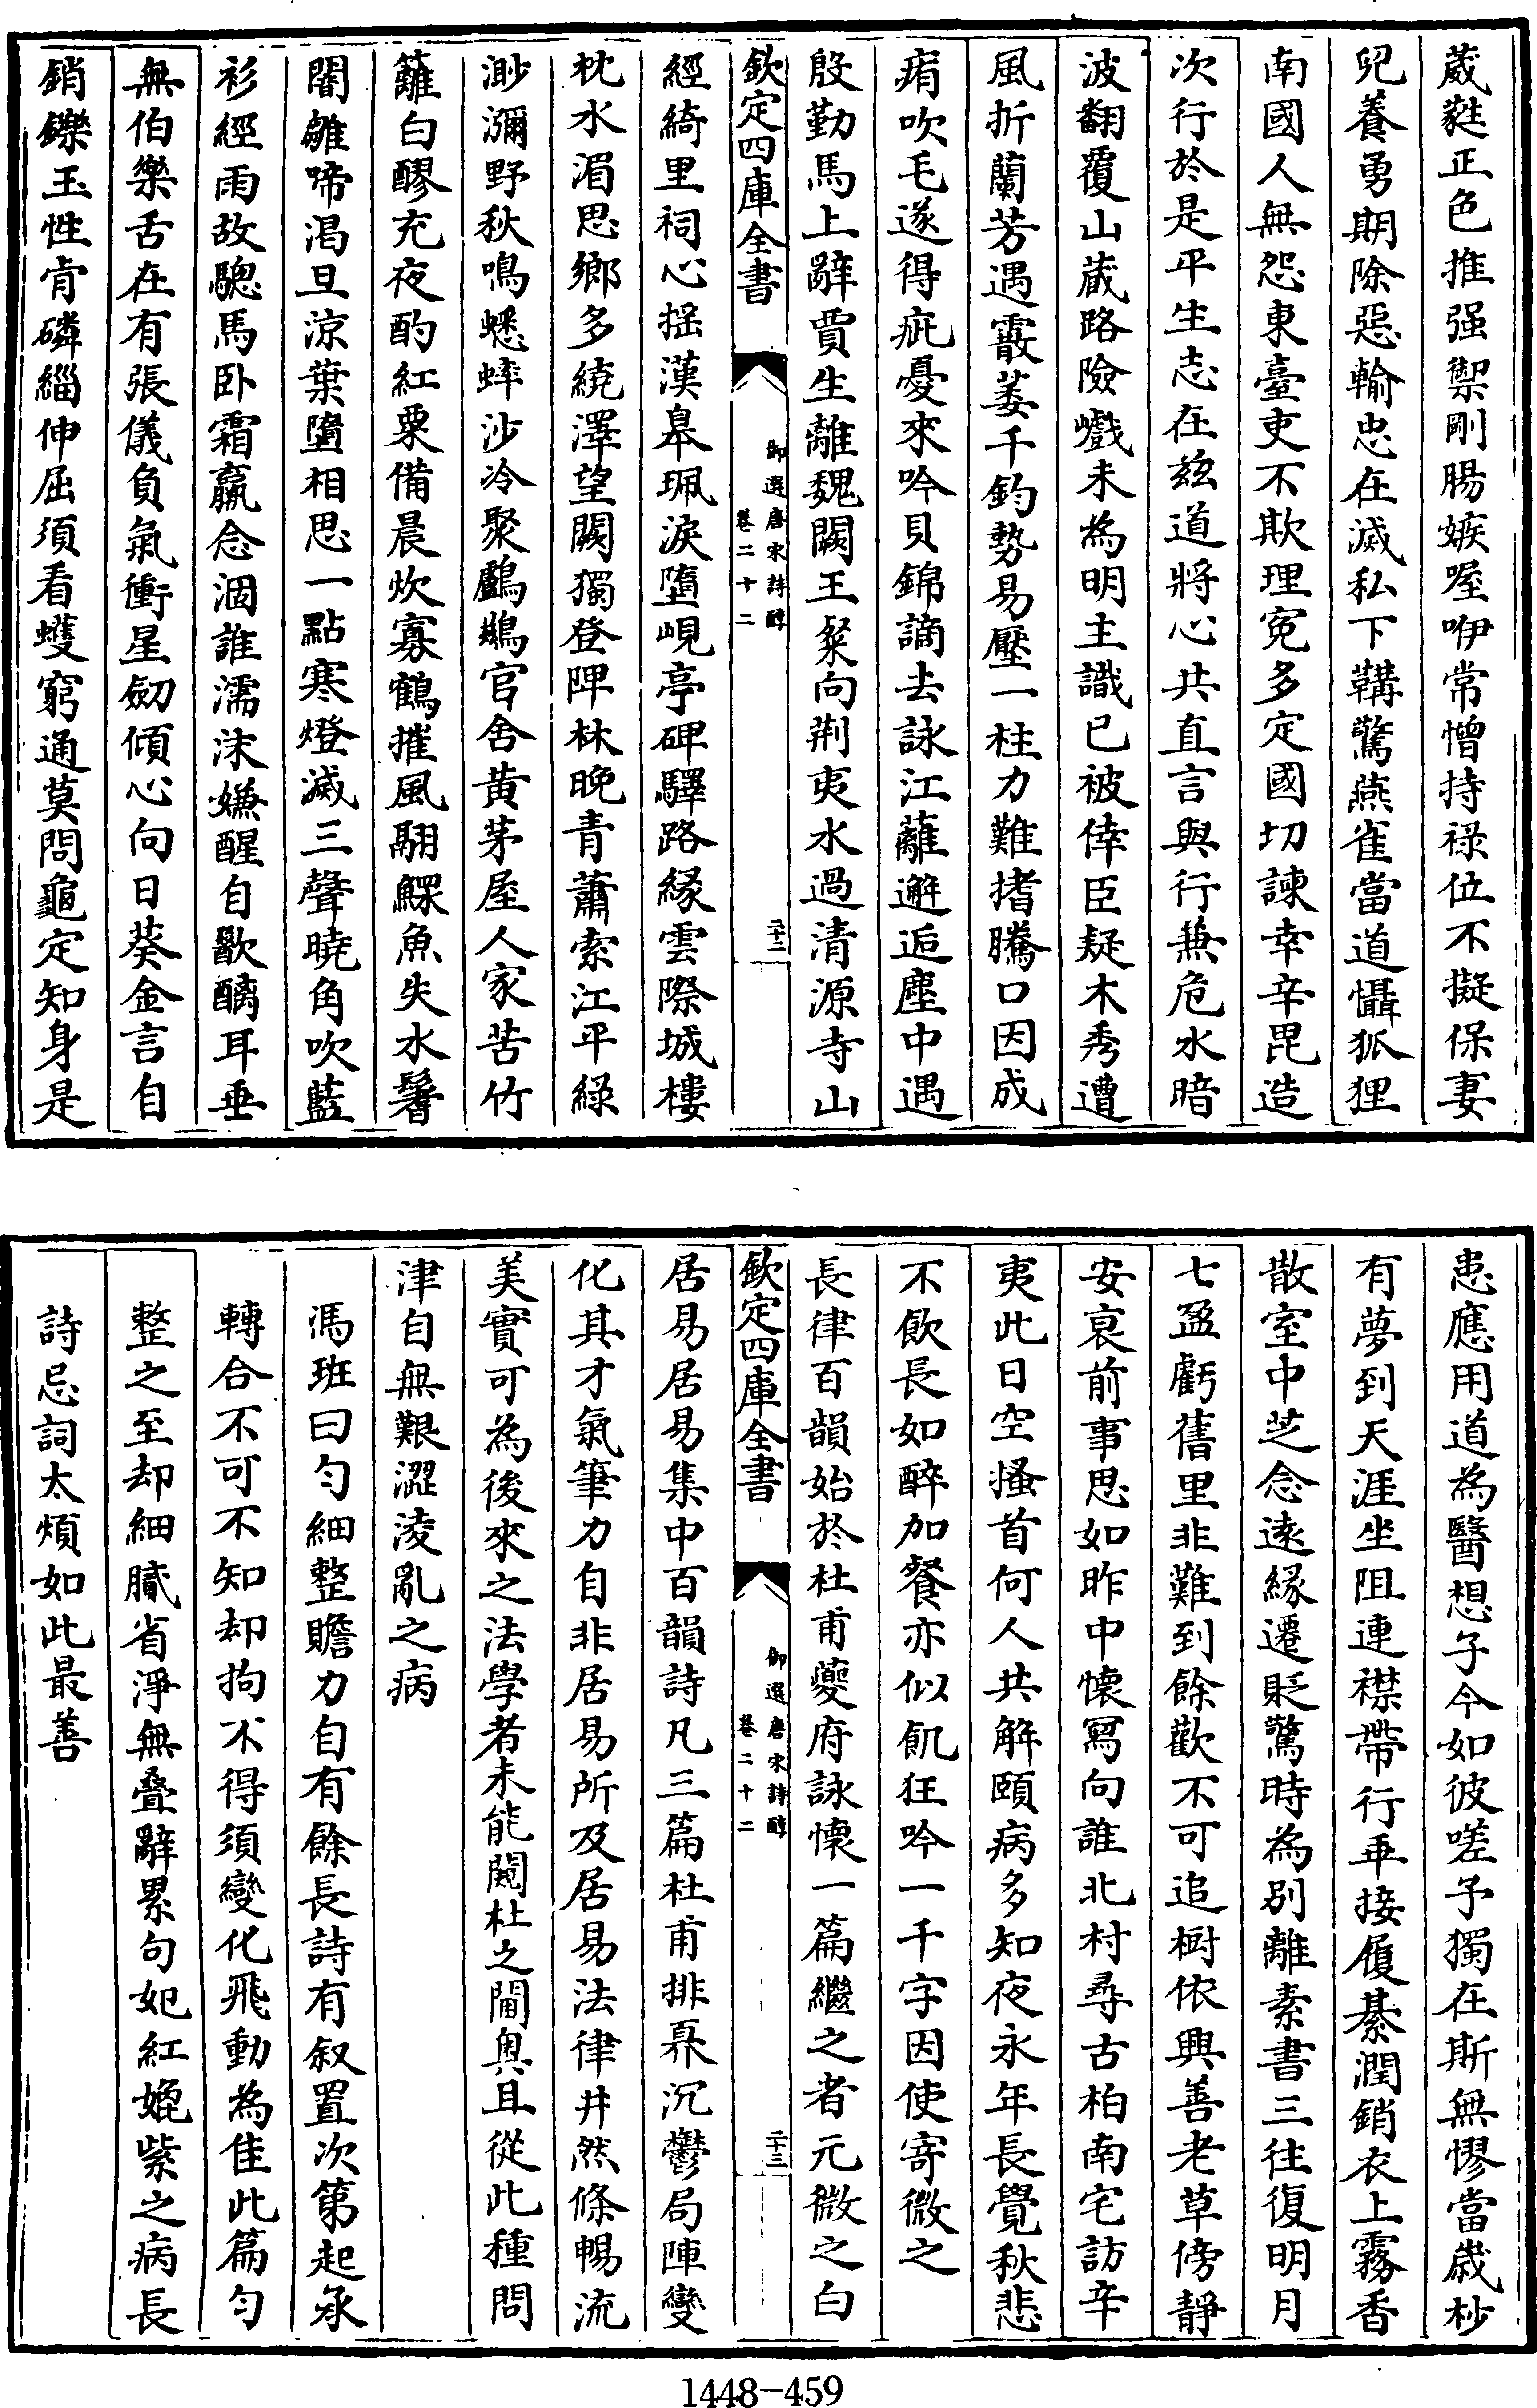 葳蕤正色推强禦剛腸嫉喔咿常憎持禄位不擬保妻
兒養勇期除惡輸忠在滅私下韝驚燕雀當道懾狐狸
南國人無怨東臺吏不欺理寃多定國切諫幸辛毘造
次行於是平生志在兹道將心共直言與行兼危水暗
波翻覆山藏路險巇未為明主識已被倖臣疑木秀遭
風折蘭芳遇霰萎千鈞勢易壓一柱力難搘騰口因成
痏吹毛遂得疵憂來吟貝錦謫去詠江蘺邂逅塵中遇
殷勤馬上辭賈生離魏闕王粲向荆夷水過清源寺山
欽定四庫全書
御選唐宋詩醇
卷二十二
二十二
經綺里祠心揺漢臯珮淚墮峴亭碑驛路緣雲際城樓
枕水湄思鄉多繞澤望闕獨登陴林晚青蕭索江平綠
渺瀰野秋鳴蟋蟀沙冷聚鸕鷀官舍黄茅屋人家苦竹
籬白醪充夜酌紅粟備晨炊寡鶴摧風翮鰥魚失水鬐
闇雛啼渴旦涼葉墮相思一點寒燈滅三聲曉角吹藍
衫經雨故驄馬卧霜羸念涸誰濡沫嫌醒自歠醨耳垂
無伯樂舌在有張儀負氣衝星劒傾心向日葵金言自
銷鑠玉性肯磷緇伸屈須看蠖窮通莫問龜定知身是
患應用道為醫想子今如彼嗟予獨在斯無憀當歲杪
有夢到天涯坐阻連襟帶行乖接履綦潤銷衣上霧香
散室中芝念遠緣遷貶驚時為别離素書三往復明月
七盈虧舊里非難到餘歡不可追樹依興善老草傍靜
安衰前事思如昨中懷冩向誰北村尋古柏南宅訪辛
夷此日空搔首何人共解頤病多知夜永年長覺秋悲
不飲長如醉加餐亦似飢狂吟一千字因使寄微之
長律百韻始於杜甫夔府詠懷一篇繼之者元微之白
欽定四庫全書
御選唐宋詩醇
卷二十二
二十三
居易居易集中百韻詩凡三篇杜甫排奡沉鬱局陣變
化其才氣筆力自非居易所及居易法律井然條暢流
美實可為後來之法學者未能闚杜之閫奥且從此種問
津自無艱澀淩亂之病
馮班曰勻細整贍力自有餘長詩有叙置次第起承
轉合不可不知却拘不得須變化飛動為佳此篇勻
整之至却細膩省淨無叠辭累句妃紅媲紫之病長
詩忌詞太煩如此最善
1448-459